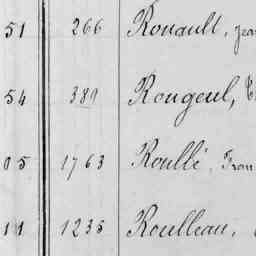 51 266 Rouault, Jea
54 389 Rougeul,
05 1763 Roullé, Fran
11 1235 Roulleau,